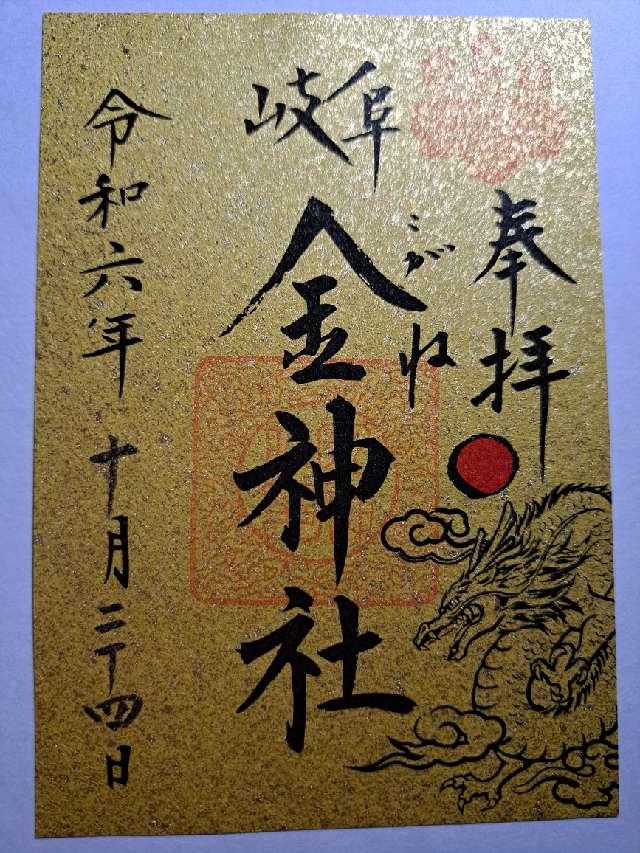 奉拝
岐阜
こがね
金神社
令和六年十月二十四日